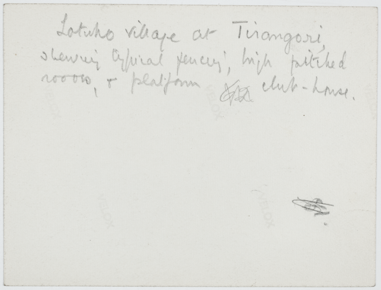 Lotuho village at Tirangori,
shewing typical fencing, high pitched
roofs, + platform club-house.